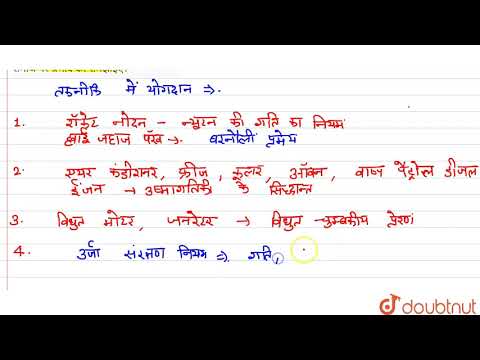 तकनीकि में योगदान ⇒.
1. रॉकेट नोदन - न्यूटन की गति का नियम
हवाई जहाज पंख → बरनौली प्रमेय
2. एयर कंडीशनर, फ्रीज, कूलर, ऑवन, वाष्प पेट्रोल डीजल
ईंजन → उष्मागतिकी के सिद्धान्त
3. विधुत मोटर, जनरेटर → विधुत चुम्बकीय प्रेरण
4. उर्जा संरक्षण नियम ⇒ गति,
doubtnut